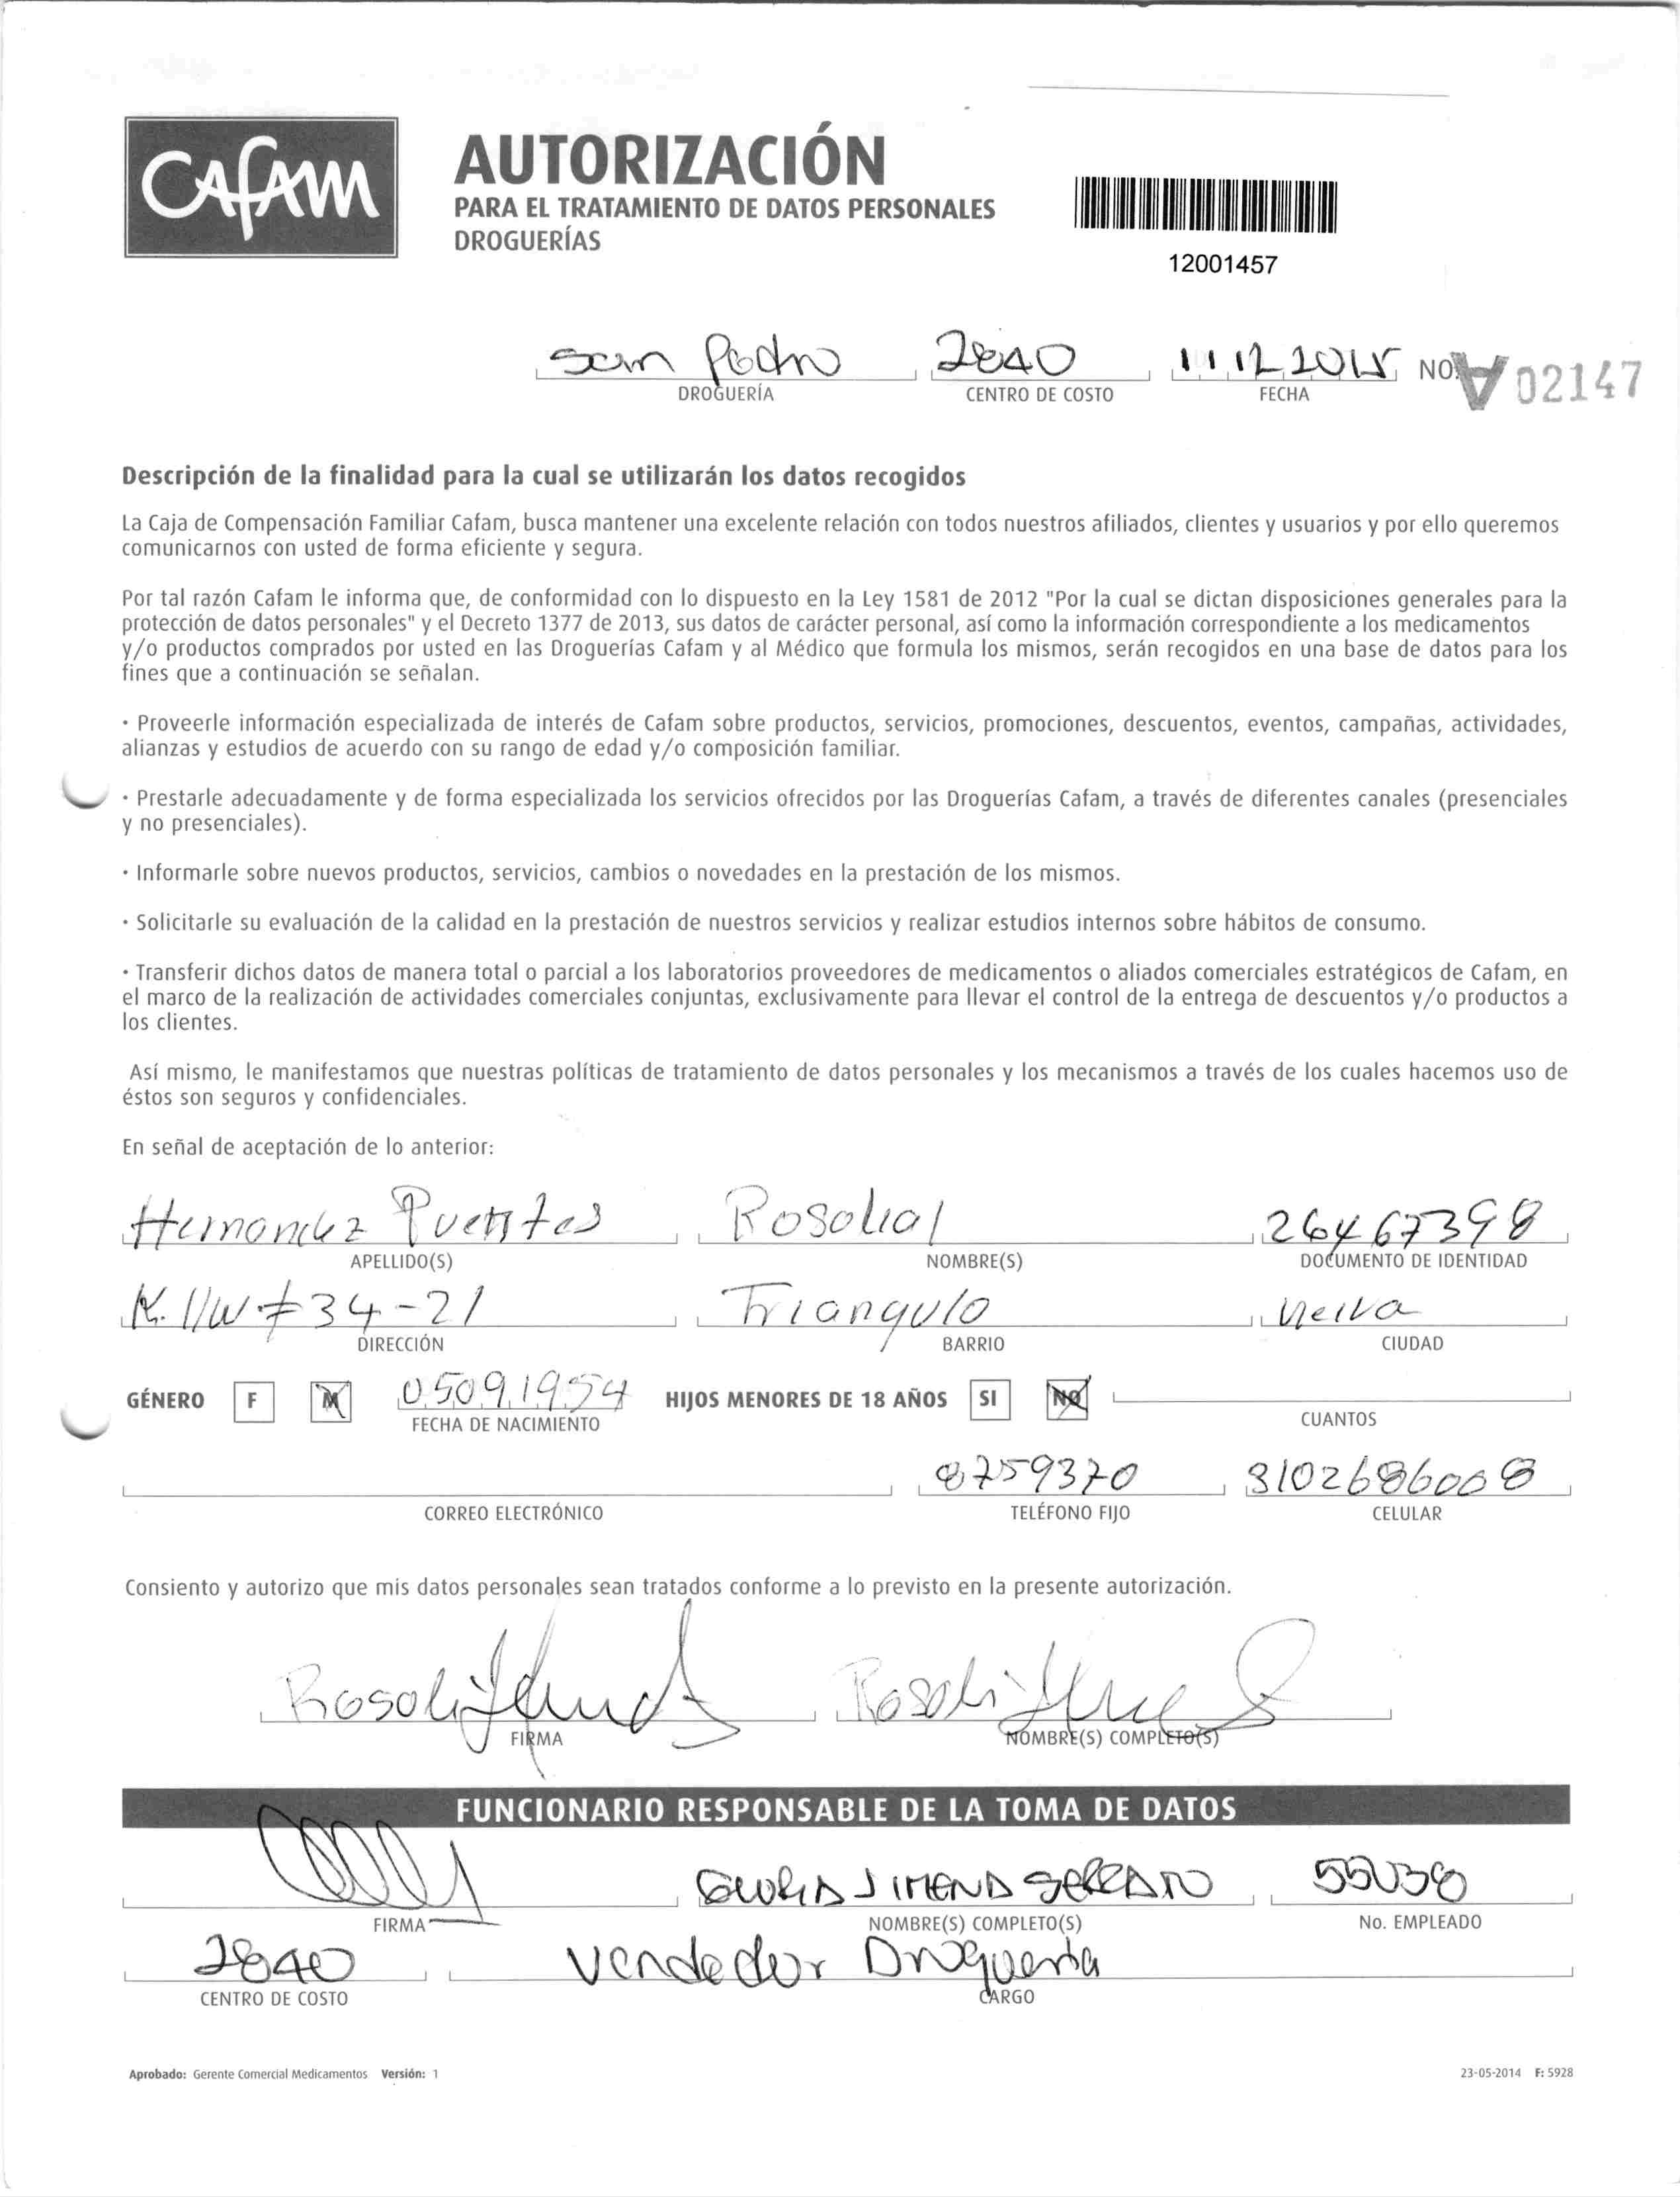 CAFAM
AUTORIZACIÓN
PARA EL TRATAMIENTO DE DATOS PERSONALES
DROGUERÍAS
12001457
San Pedro 2840 11 12 2015 NO. A 02147
DROGUERÍA CENTRO DE COSTO FECHA
Descripción de la finalidad para la cual se utilizarán los datos recogidos
La Caja de Compensación Familiar Cafam, busca mantener una excelente relación con todos nuestros afiliados, clientes y usuarios y por ello queremos
comunicarnos con usted de forma eficiente y segura.
Por tal razón Cafam le informa que, de conformidad con lo dispuesto en la Ley 1581 de 2012 "Por la cual se dictan disposiciones generales para la
protección de datos personales" y el Decreto 1377 de 2013, sus datos de carácter personal, así como la información correspondiente a los medicamentos
y/o productos comprados por usted en las Droguerías Cafam y al Médico que formula los mismos, serán recogidos en una base de datos para los
fines que a continuación se señalan.
· Proveerle información especializada de interés de Cafam sobre productos, servicios, promociones, descuentos, eventos, campañas, actividades,
alianzas y estudios de acuerdo con su rango de edad y/o composición familiar.
· Prestarle adecuadamente y de forma especializada los servicios ofrecidos por las Droguerías Cafam, a través de diferentes canales (presenciales
y no presenciales).
· Informarle sobre nuevos productos, servicios, cambios o novedades en la prestación de los mismos.
· Solicitarle su evaluación de la calidad en la prestación de nuestros servicios y realizar estudios internos sobre hábitos de consumo.
· Transferir dichos datos de manera total o parcial a los laboratorios proveedores de medicamentos o aliados comerciales estratégicos de Cafam, en
el marco de la realización de actividades comerciales conjuntas, exclusivamente para llevar el control de la entrega de descuentos y/o productos a
los clientes.
Así mismo, le manifestamos que nuestras políticas de tratamiento de datos personales y los mecanismos a través de los cuales hacemos uso de
éstos son seguros y confidenciales.
En señal de aceptación de lo anterior:
Hernandez Puentes Rosalial 26467398
APELLIDO(S) NOMBRE(S) DOCUMENTO DE IDENTIDAD
K. 11W # 34-21 Triangulo Neiva
DIRECCIÓN BARRIO CIUDAD
GÉNERO F M 05091954 HIJOS MENORES DE 18 AÑOS SI NO
FECHA DE NACIMIENTO CUANTOS
8759370 3102686008
CORREO ELECTRÓNICO TELÉFONO FIJO CELULAR
Consiento y autorizo que mis datos personales sean tratados conforme a lo previsto en la presente autorización.
FIRMA NOMBRE(S) COMPLETO(S)
FUNCIONARIO RESPONSABLE DE LA TOMA DE DATOS
GLORIA JIMENA SERRATO 55038
FIRMA NOMBRE(S) COMPLETO(S) No. EMPLEADO
2840 Vendedor Drogueria
CENTRO DE COSTO CARGO
Aprobado: Gerente Comercial Medicamentos Versión: 1 23-05-2014 F: 5928